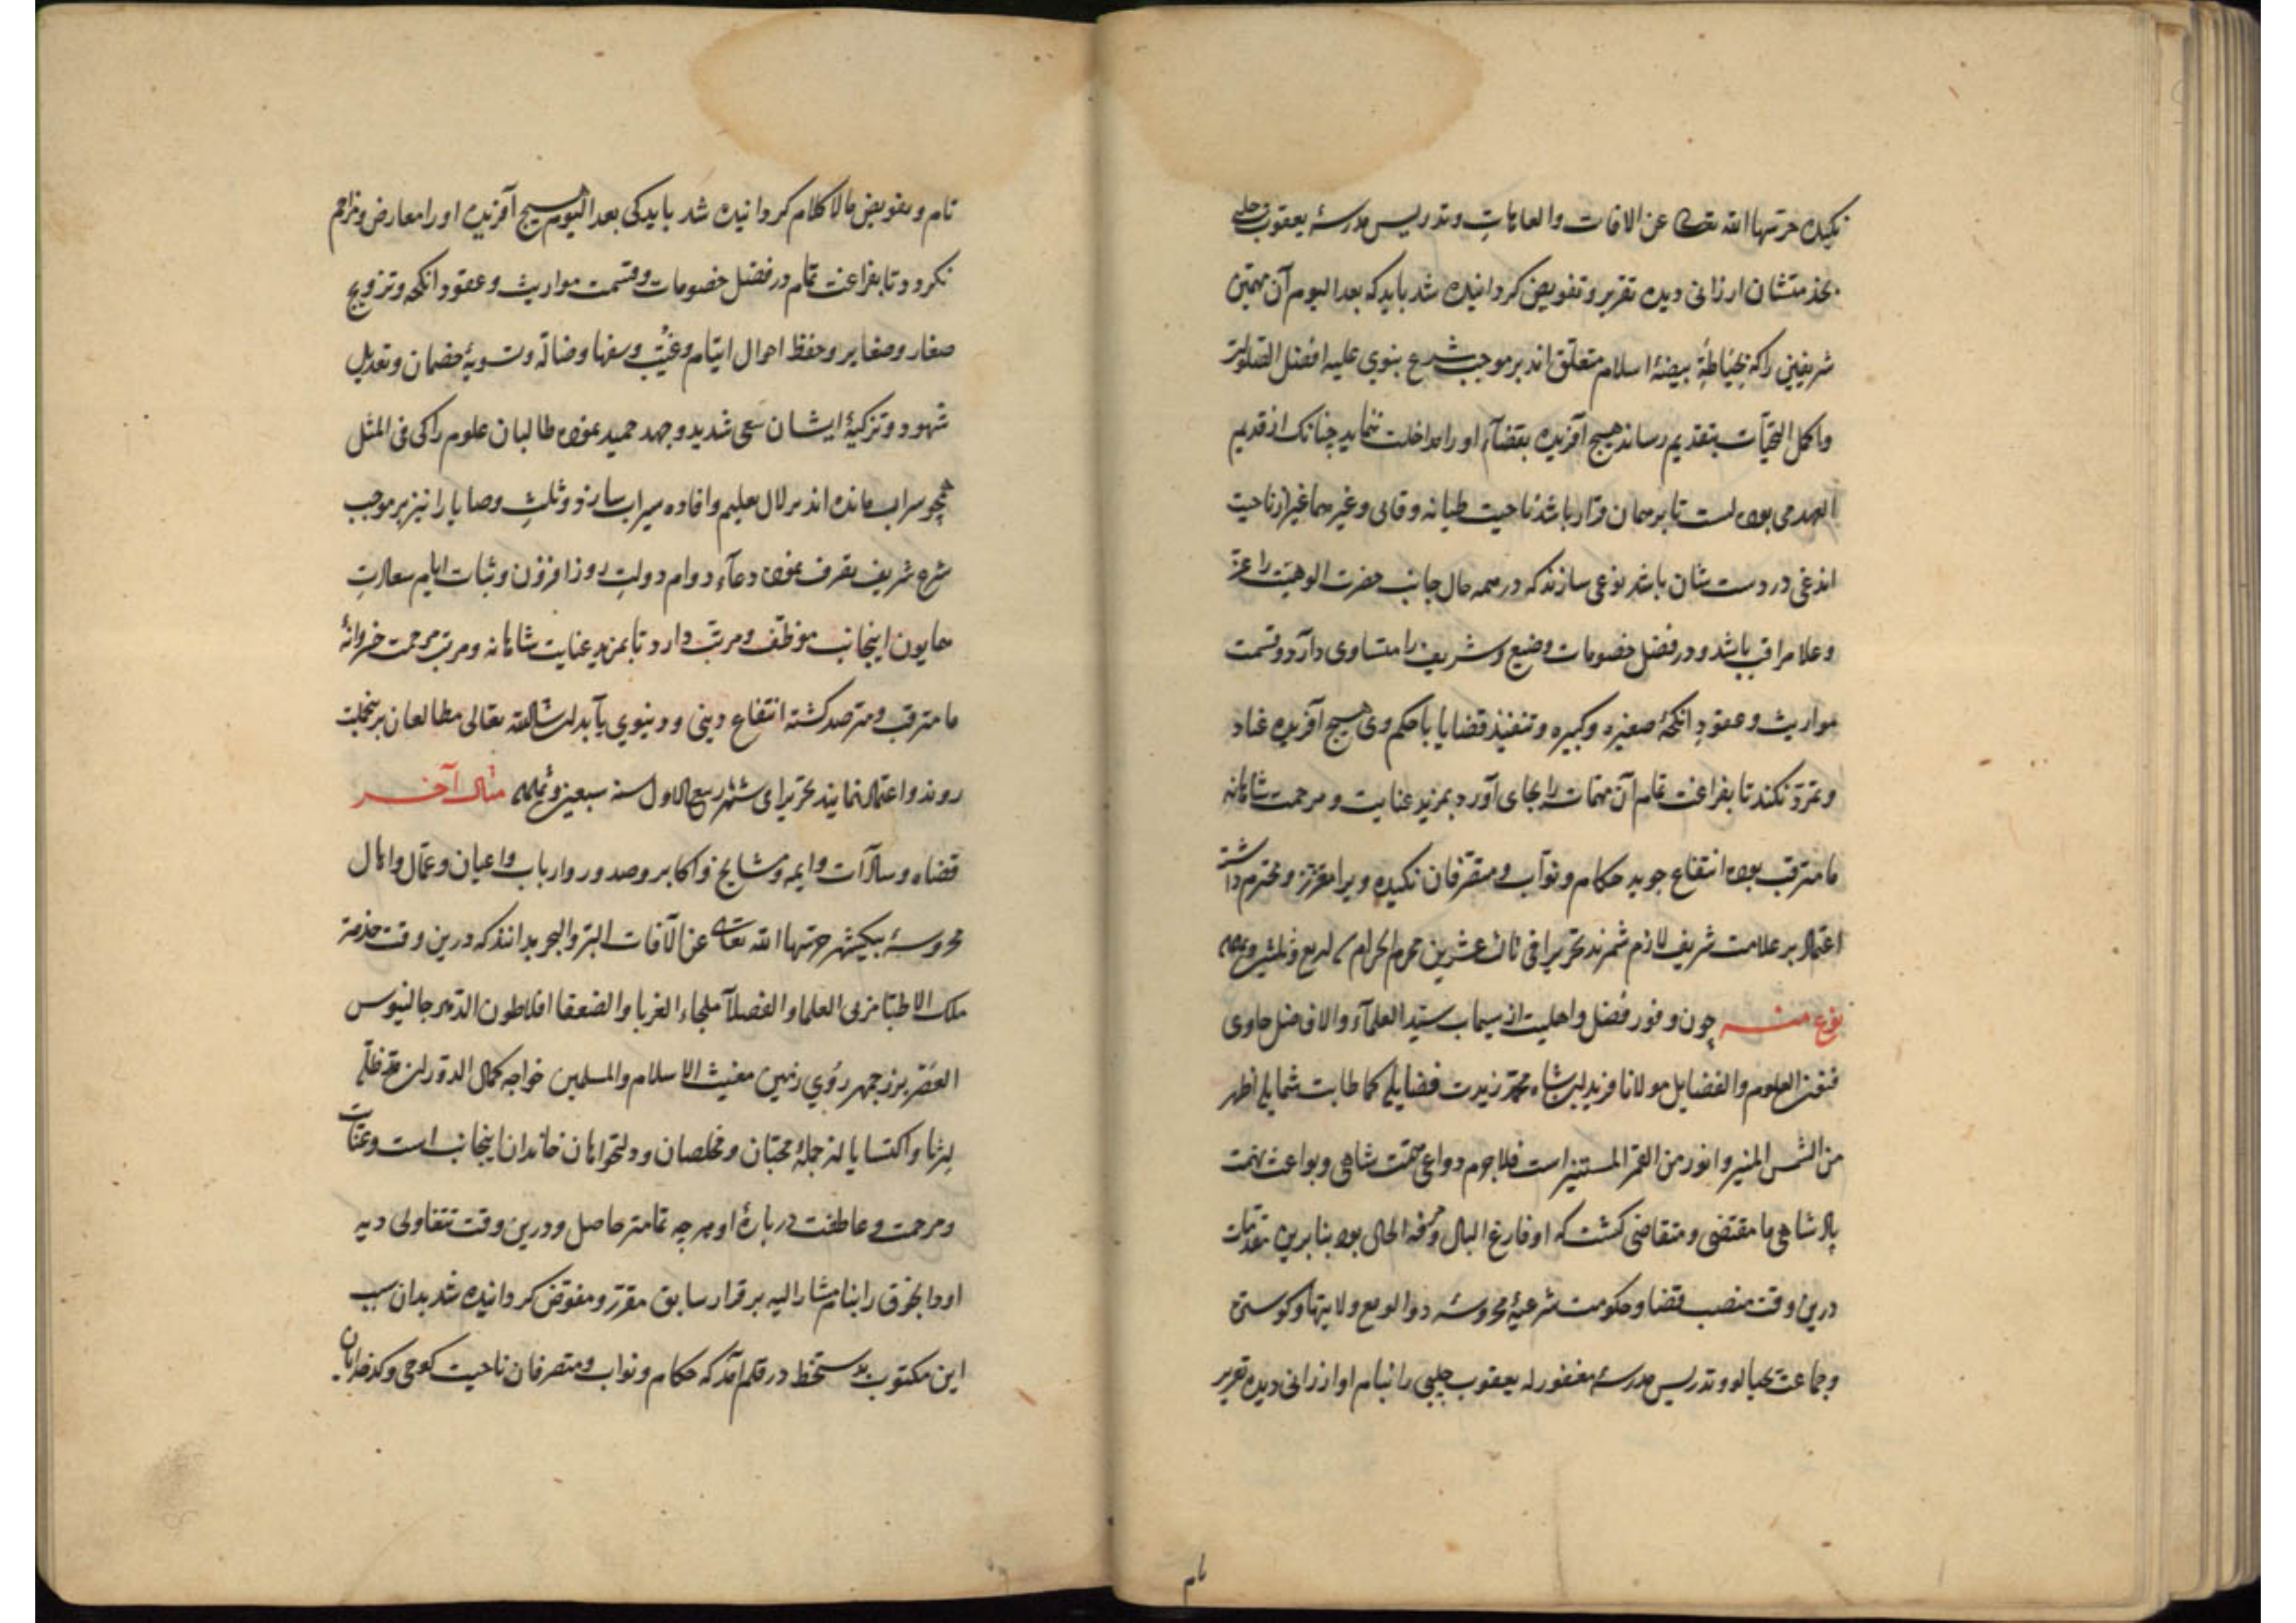 نکیده حرسها الله تعالی عن الافات والعاهات وتدریس مدرسۀ یعقوب چلبی
بخدمتشان ارزانی دیده تقریر وتفویض کردانیده شد باید که بعد الیوم آن مهمّین
شریفین را که بحیاطۀ بیضۀ اسلام متعلّق اند بر موجب شرع نبوی علیه افضل الصّلوات
واکمل التحیّات بتقدیم رساند هیچ آفریده بقضآء او را مداخلت ننماید چنانک از قدیم
العهد می بوده است تا بر همان قرار باشد ناحیت وغیرهما غیر از ناحیت
در دست شان باشد نوعی سازند که در همه حال جانب حضرت الوهیّت را عزّ
وعلا مراقب باشد ودر فصل خصومات وضیع وشریف را متساوی دارد وقسمت
مواریث وعقود انکحۀ صغیره وکبیره وتنفیذ قضایا با حکم وی هیچ آفریده عناد
وتمرّد نکند تا بفراغت تمام آن مهمّات را بجای آورد بمزید عنایت ومرحمت شاهانه
ما مترقب بوده انتفاع جوید حکام ونوّاب ومتصرّفان نکیده ویرا معزّز ومحترم داشته
اعتماد بر علامت شریف لازم شمرند تحریرا فی ثالث عشرین محرم الحرام
نوع منه چون وفور فضل واهلیت از سیماب سیّد العلمآء والافاضل حاوی
فنون العلوم والفضایل مولانا شاه محمّد زیدت فضایله کما طابت شمایله اظهر
من الشمس المنیر وانور من القمر المستنیر است فلاجرم دواعی همّت شاهی وبواعث نهمت
پادشاهی ما مقتضی ومتقاضی کشت که او فارغ البال ومرفه الحال بوده بنابرین مقدّمات
درین وقت منصب قضا وحکومت شرعیۀ محروسۀ دوالو مع ولایتها
وجماعت وتدریس مدرسۀ مغفور له یعقوب چلبی را بنام او ارزانی دیده تقریر
تام
تام وتفویض مالا کلام کردانیده شد باید کی بعد الیوم هیچ آفریده او را معارض ومزاحم
نکردد تا بفراغت تمام در فصل خصومات وقسمت مواریث وعقود انکحه وتزویج
صغار وصغایر وحفظ احوال ایتام وغیّب وسفها وضالّه وتسویۀ خصمان وتعدیل
شهود وتزکیۀ ایشان سعی شدید وجهد حمید نموده طالبان علوم را کی فی المثل
همچو سراب مانده اند بزلال تعلیم وافاده سیراب سازد وثلث وصایا را نیز بر موجب
شرع شریف تصرف نموده دعآء دوام دولت روز افزون وثبات ایام سعادت
همایون اینجانب موظّف ومرتّب دارد تا بمزید عنایت شاهانه ومرتب مرحمت خسروانۀ
ما مترقب ومترصد کشته انتفاع دینی ودنیوی یابد ان شالله تعالی مطالعان برینجملت
روند واعتماد نمایند تحریرا فی شهر ربیع الاول سنه سبعین مثال آخر
قضاه وسادات وایمه ومشایخ واکابر وصدور وارباب واعیان وعمّال واهال
محروسۀ بیکیشهر حرسها الله تعالی عن آلافات البرّ والبحر بدانند که درین وقت خدمة
ملک الاطبّا مربی العلما والفضلآ ملجاء الغربا والضعفا افلاطون الدّهر جالینوس
العصر بزرجمهر روی زمین مغیث الاسلام والمسلمین خواجه کمال الدوله
ارثا واکتسابا از جملۀ محبّان ومخلصان ودولتخواهان خاندان اینجانب است وعنایات
ومرحمت وعاطفت در بارۀ او هر چه تمامتر حاصل ودرین وقت دیه
را بنام مشار الیه بر قرار سابق مقرّر ومفوّض کردانیده شد بدان سبب
این مکتوب بدستخط در قلم آمد که حکام ونواب ومتصرفان ناحیت وکدخدایان